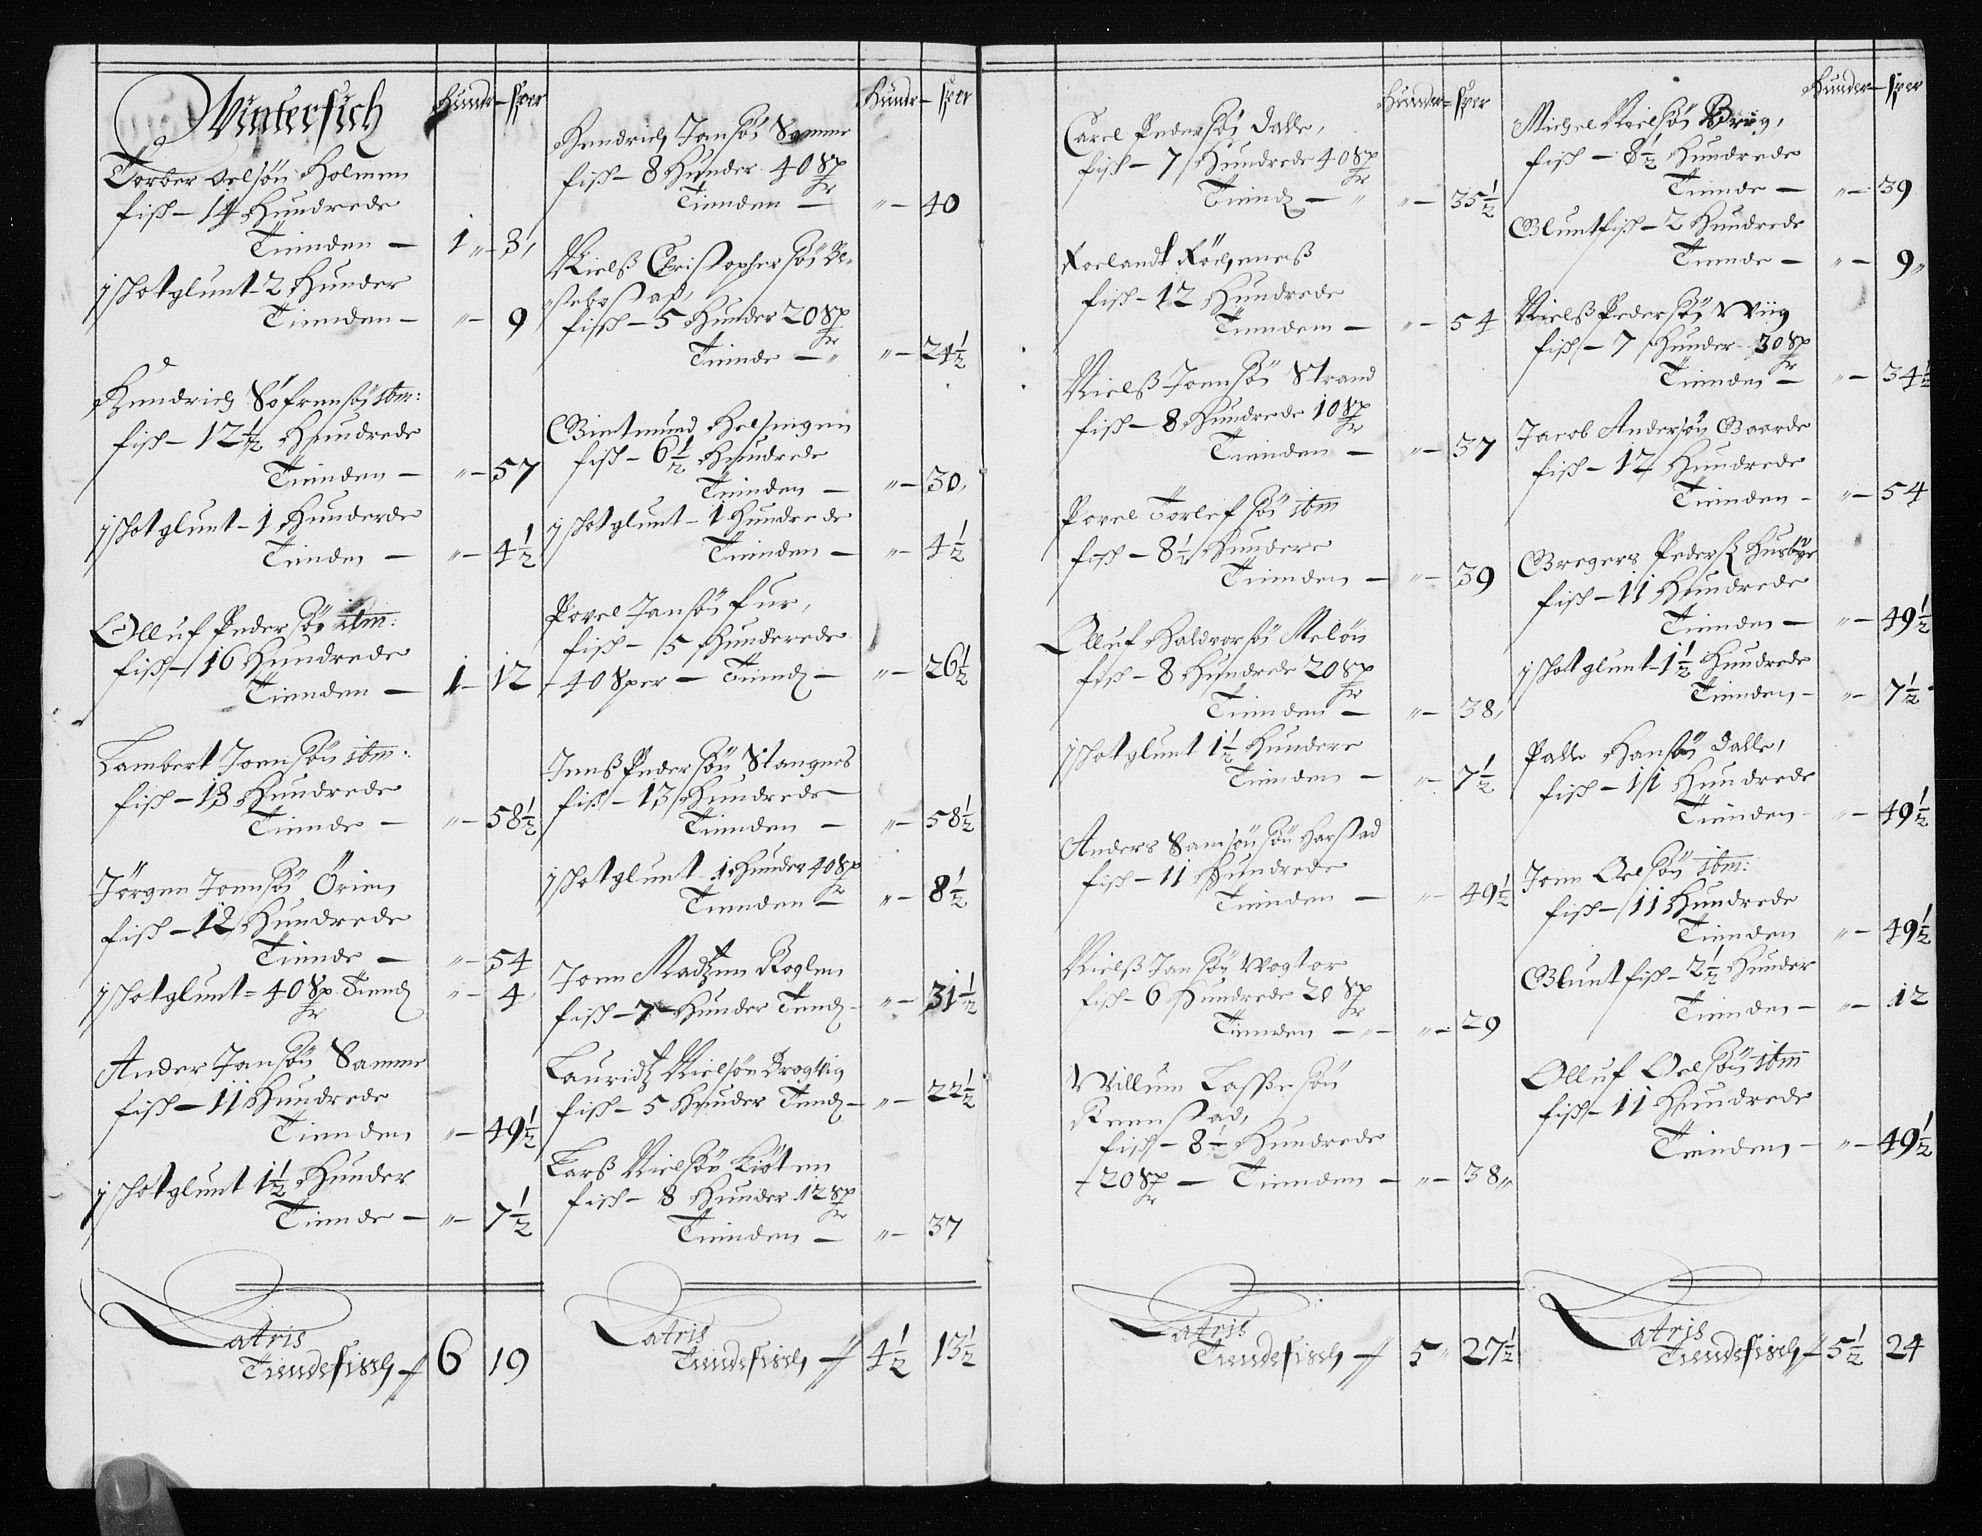 Hundr - sper
Vintersich
Torber Oelsön Holmen
fisk - 14 Hundrede
Tiinden - 1 „ - 3,
jshotglunt - 2 Hunder
Tiinden - „ - 9
Hendrich Söfrensön itm:
fisk - 12½ Hundrede
Tiinden - „ - 57
jshotglunt - 1 Hunderde
Tinden - „ - 4½
Olluf Pedersön itm:
fisk - 16 Hundrede
Tiinden - 1 - 12
Lambert Joensön itm:
fisk - 13 Hundrede
Tiinde - „ - 58½
Jörgen Joensön Örien
fisk - 12 Hundrede
Tiinde - „ - 54
jshotglunt - 40 Sp Tiend „ - 4,
Ander Jansön Samme
fisk - 11 Hundrede
Tiinden „ - 49½
jshotglunt 1½ Hunder
Tiinde - „ - 7½
Latris
Tiendefisch 6 19
Hundr - sper
Hendrich Jansön Samme
fisk - 8 Hunder 40 Sp
Tiinden - „ - 40
Nielß Christophersön
fisk - 5 Hunder 20 Sp
Tiinde - „ „ - 24½
Gietmund Helsingen
fisk - 6½ Hundrede
Tiinden - „ - 30,
jshotglunt - 1 Hundrede
Tiinden - „ - 4½
Povel Jansön fur,
fisk - 5 Hunderede
40 Sper - Tiind - „ - 26½
Jenß Pedersön Stangnes
fisk - 13 Hundrede
Tiinden - „ - 58½
jshotglunt 1 Hunder 40 Sp
Tiinden - „ - 8½
Joen Madtzen Roglen
fisk - 7 Hunder Tind - „ - 31½
Lauridtz Nielsön Dragvig
fisk - 5 Hunder Tind - „ - 22½
Larß Nielsön Kiöten
fisk - 8 Hunder 12 Sp
Tiinden - „ - 37
Latris
Tiendefisch 4½ 13½
Hunder - sper
Carel Pedersön Dalle,
fisk - 7 Hundrede 40 Sp
Tiind - „ „ - 35½
Roelandt Röchenes
fisk - 12 Hundrede
Tiinden - „ - 54
Nielß Joensön Strand
fisk - 8 Hundrede 10 Sp
Tiinden - „ - 37
Povel Torlefsön itm
fisk - 8½ Hundere
Tiinden - „ - 39
Olluf Haldvorsön Melön
fisk - 8 Hundrede 20 Sp
Tiinden - „ - 38,
jshotglunt 1½ Hundere
Tiinden - „ - 7½
Anders Samsönsön Harstad
fisk - 11 Hundrede
Tiinden - „ - 49½
Nielß Jansön Wogtor
fisk - 6 Hundrede 20 Sp
Tiinden - „ - „ - 29
Willum Laßsesön
Renstad,
fisk - 8½ Hundrede
20 Sp - Tiinden - „ - 38 „
Latris
Tiendefisch 5 „ 27½
Hunder - sper
Michel Nielsön Brig,
fisk - 8½ Hundrede
Tiinde - „ - 39
Gluntfisk - 2 Hundrede
Tiinde - „ - 9 „
Nielß Pedersön Wiig
fisk - 7 Hunder 30 Sp
Tiinden - „ - 34½
Jacob Andersön Gaarde
fisk - 12 Hundrede
Tiinden - „ - 54
Gregers Peders Husbye
fisk - 11 Hundrede
Tiinden - „ - 49½
jshotglunt - 1½ Hundrede
Tiinden - „ - 7½
Palle Hansön Dalle,
fisk - 11 Hundrede
Tiinden - „ - 49½
Joen Oelsön itm:
fisk - 11 Hundrede
Tiinden „ - 49½
Gluntfisk - 2½ Hunder
Tiinden - „ - 12
Olluf Oelsön itm
fisk - 11 Hundrede
Teinden - „ - 49½
Latris
Tiendefisch 5½ 24